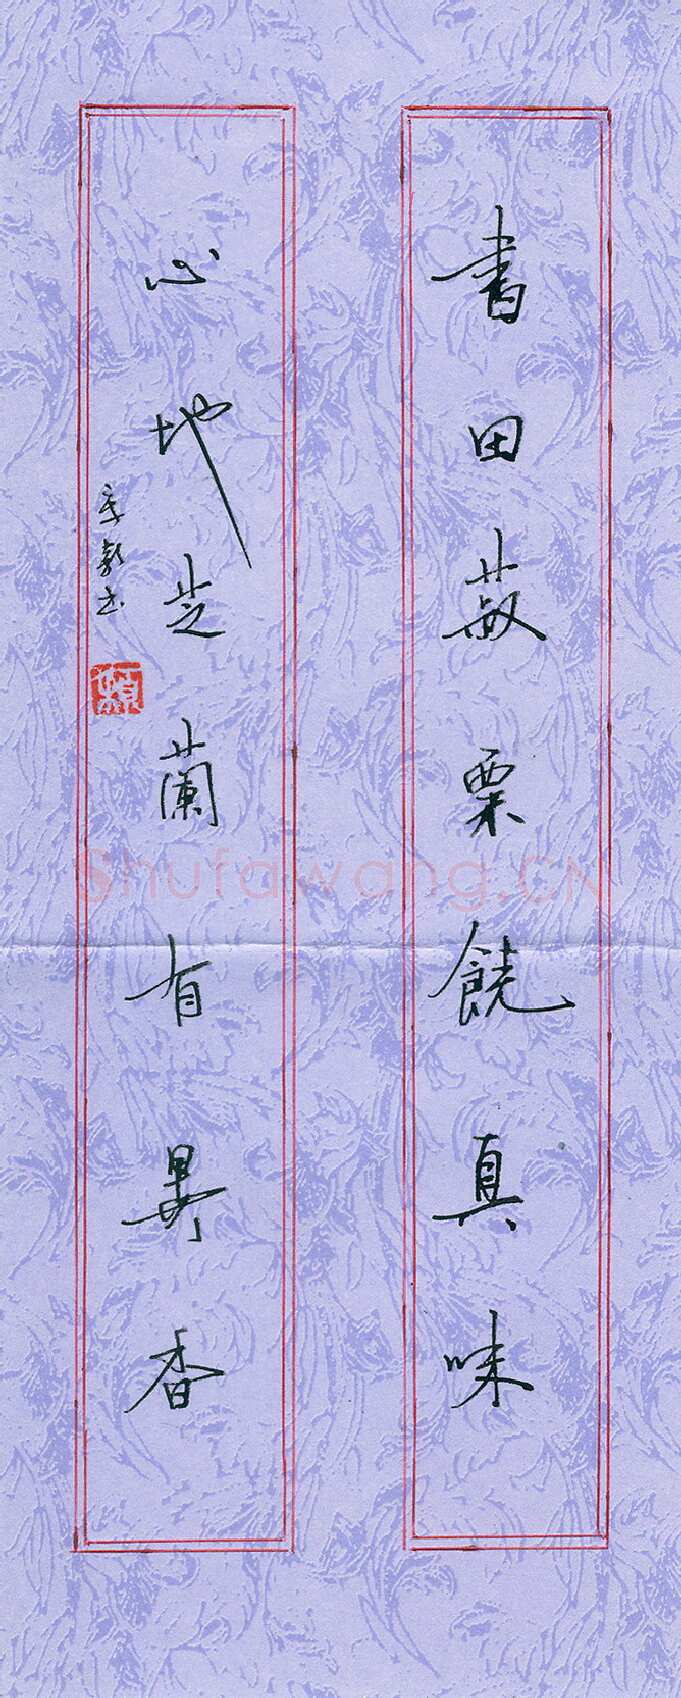 書田菽粟饒真味
心地芷蘭有異香
Shufawang.CN